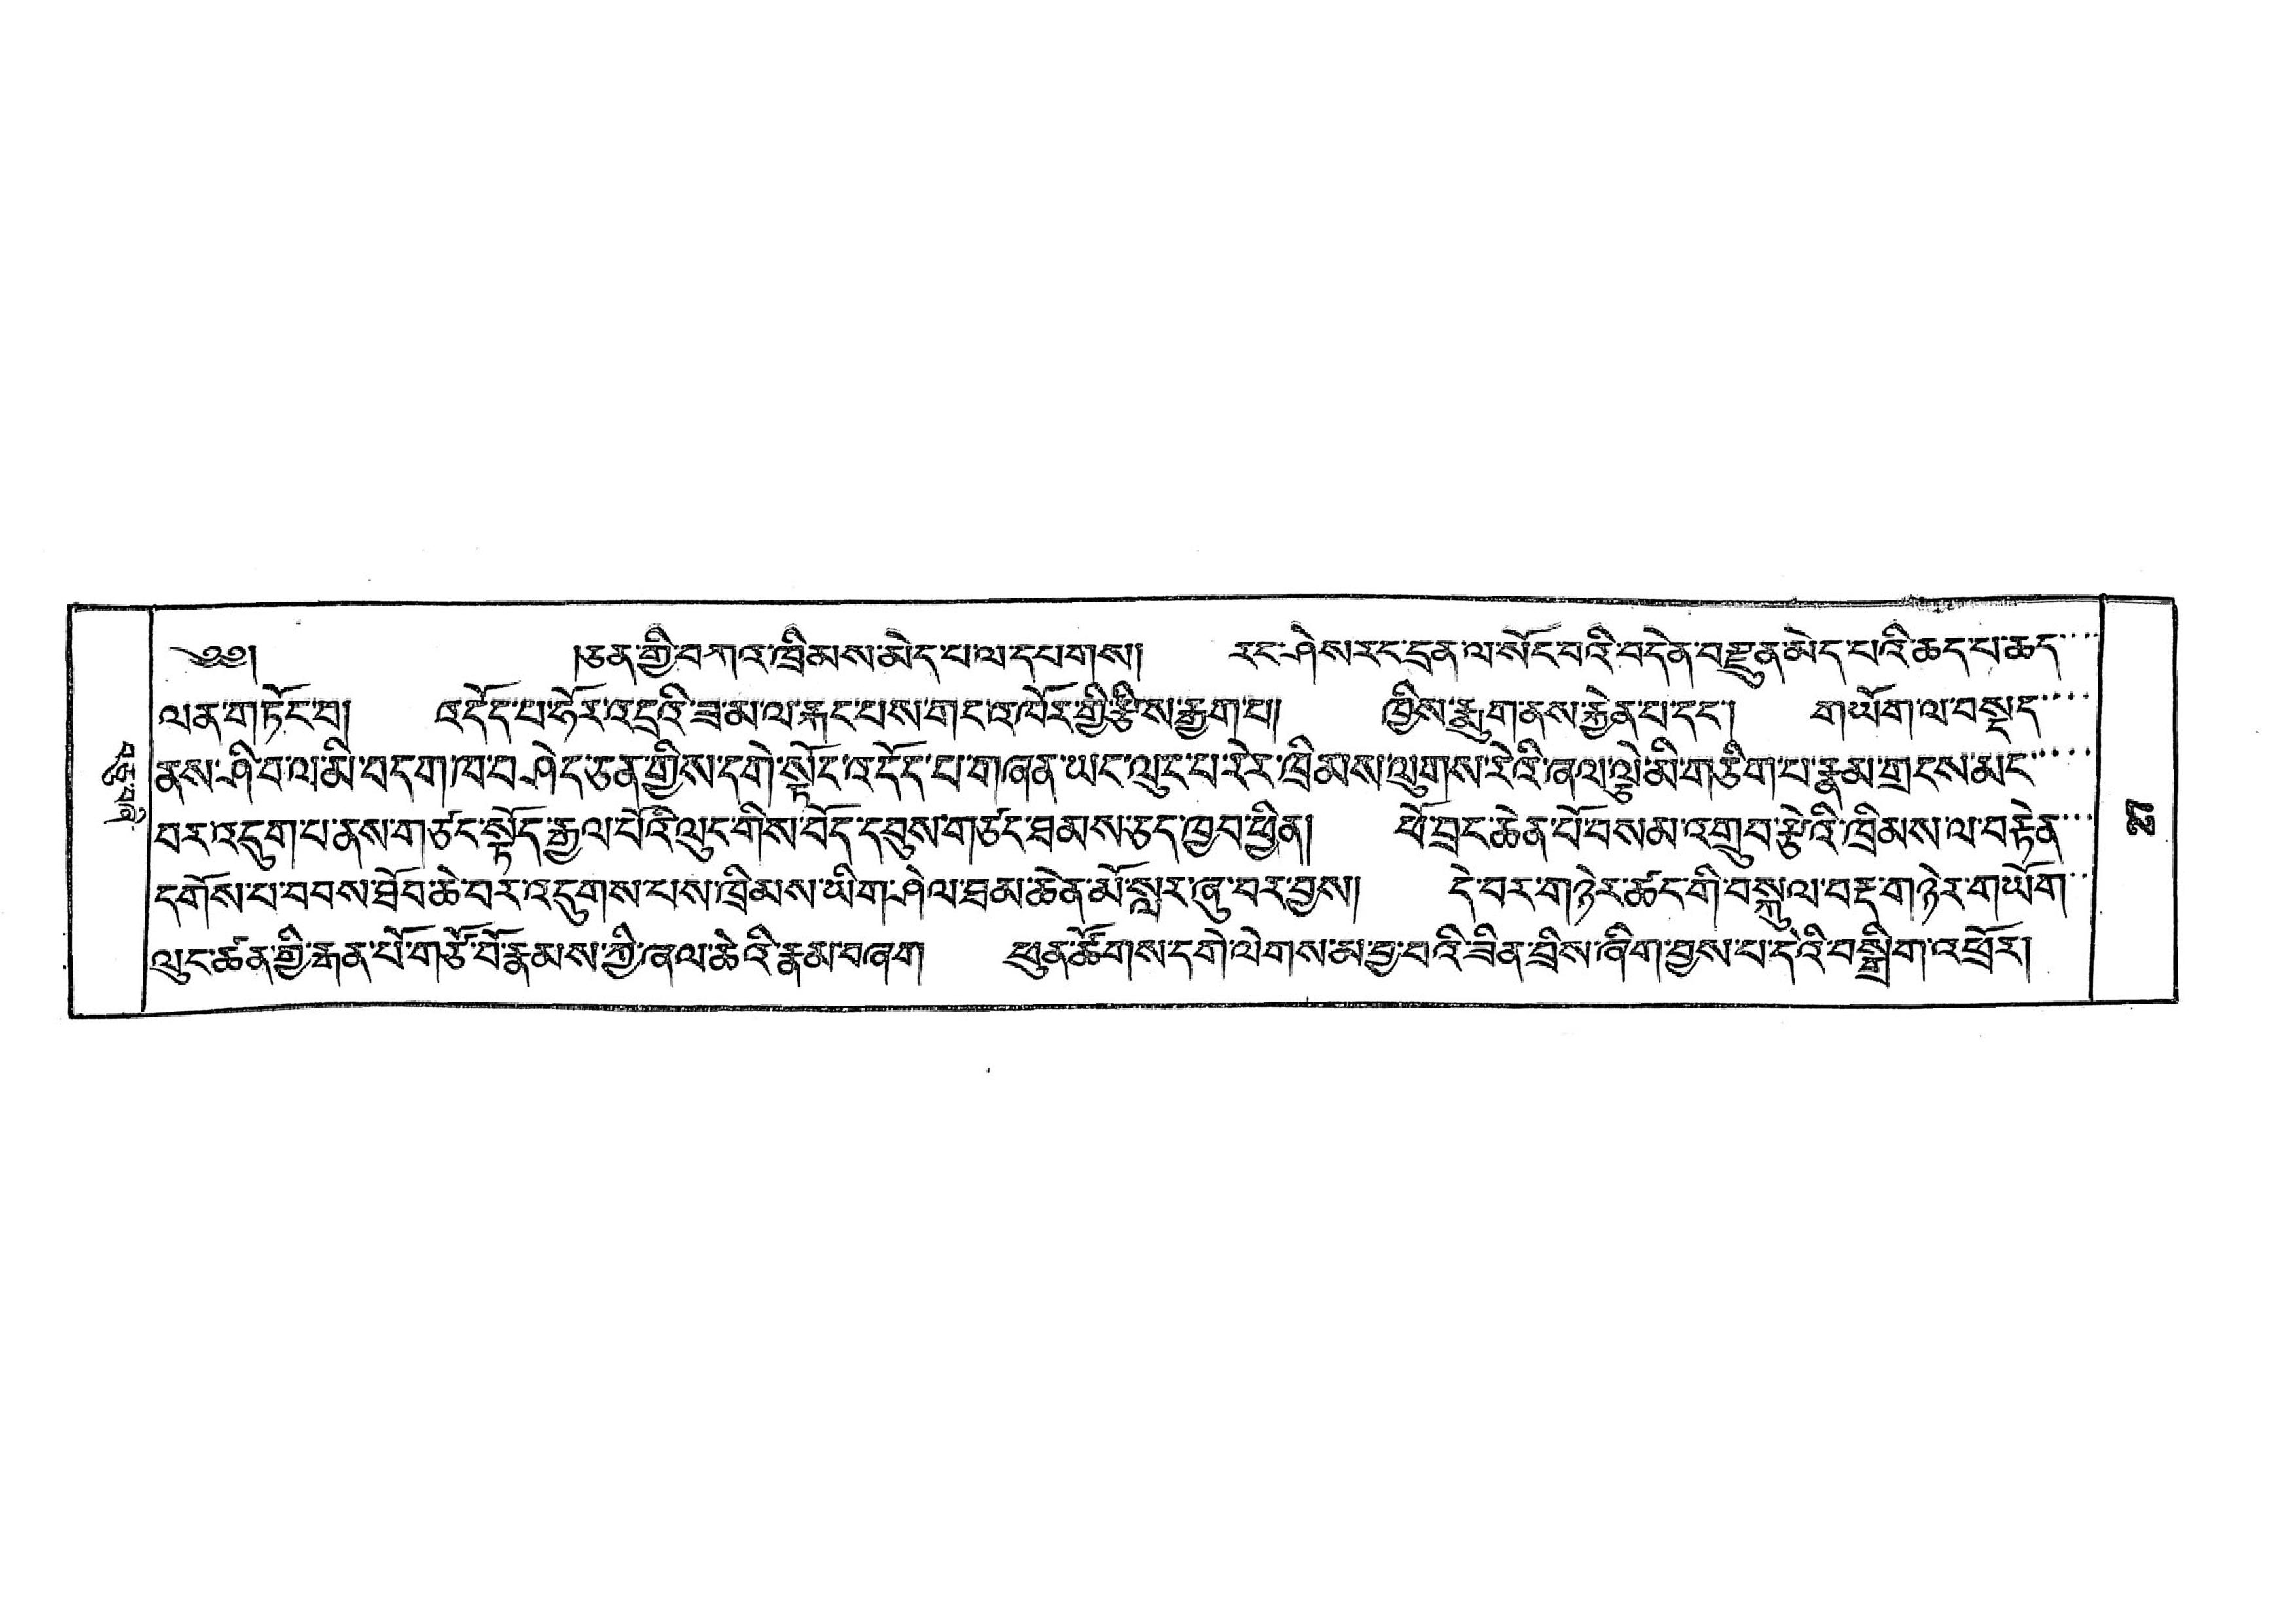 ༄༅། །ཅན་གྱི་བཀའ་ཁྲིམས་མེད་པ་ལ་དཔགས། རང་ཤེས་རང་དྲན་ལ་སོང་བའི་བདེན་བརྫུན་མེད་པའི་ཆད་པ་ཆད
ལན་གཏོང་བ། འདོད་པ་ཧོར་འདྲའི་ཟམ་ལ་རྐང་པས་གང་འཁོར་གྱི་རྩིས་རྒྱག་པ། ཁྱིས་རྨུག་ནས་རྐྱེན་པ་དང་། གཡོག་ལ་བསྡད
ནས་ཤི་བ་ལ་མི་བདག་ཁབ་ཤེད་ཅན་གྱིས་དགེ་སྟོང་འདོད་པ་གཞན་ཡང་ལུང་པ་རེར་ཁྲིམས་ལུགས་རེའི་ཞལ་ལྟེ་མི་གཅིག་པ་རྣམ་གྲངས་མང
བར་འདུག་པ་ནས་གཙང་སྟོད་རྒྱལ་པོའི་ལུང་གིས་བོད་དབུས་གཙང་ཐམས་ཅད་ཁྱབ་ཕྱིན། ཕོ་བྲང་ཆེན་པོ་བསམ་འགྲུབ་རྩེའི་ཁྲིམས་ལ་བརྟེན
དགོས་པ་བབས་ཐོབ་ཆེ་བར་འདུགས་པས་ཁྲིམས་ཡིག་ཤེལ་ཐམ་ཆེན་མོ་སླར་ཞུ་བར་བྱས། དེ་བར་གཉེར་ཚང་གི་བསྐུལ་བརྡ་གཉེར་གཡོག
ལུང་ཚན་གྱི་རྒན་པོ་གཙོ་བོ་རྣམས་ཀྱི་ཞལ་ཆེའི་རྣམ་བཞག ཕུན་ཚོགས་དགེ་ལེགས་མ་བྱ་བའི་ཟིན་བྲིས་ཞིག་བྱས་པ་དེའི་བསྒྲིག་འཕྲོར།